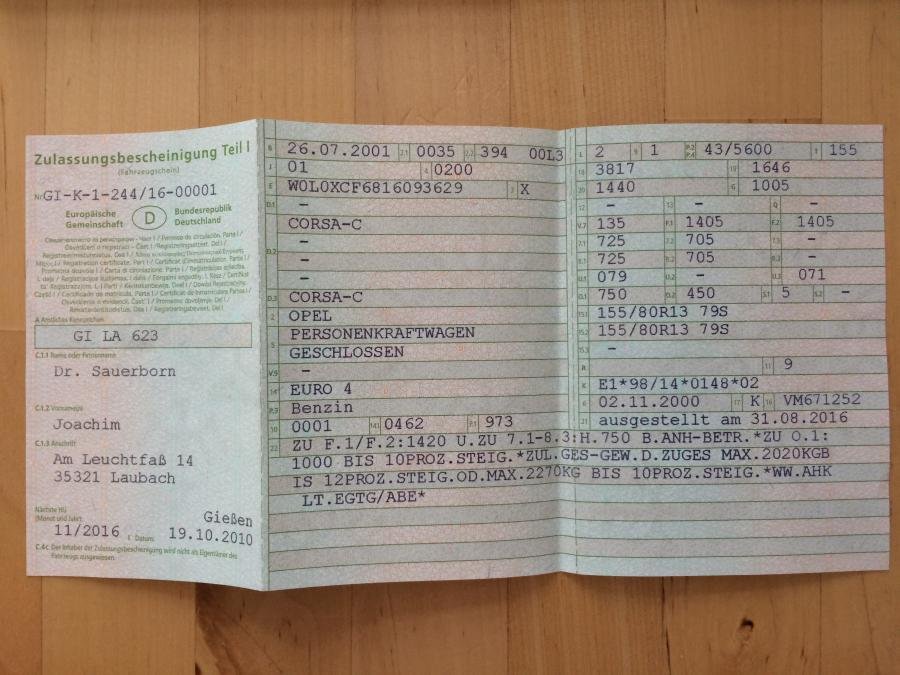 Zulassungsbescheinigung Teil I
(Fahrzeugschein)
Nr. GI-K-1-244/16-00001
Europäische Gemeinschaft D Bundesrepublik Deutschland
A Amtliches Kennzeichen
GI LA 623
C.1.1 Name oder Firmenname
Dr. Sauerborn
C.1.2 Vorname(n)
Joachim
C.1.3 Anschrift
Am Leuchtfaß 14
35321 Laubach
Nächste HU
(Monat und Jahr)
Gießen
11/2016 Datum: 19.10.2010
C.4c Der Inhaber der Zulassungsbescheinigung wird nicht als Eigentümer des
Fahrzeugs ausgewiesen.
B 26.07.2001 2.1 0035 2.2 394 00L3
J 01 4 0200
E W0L0XCF6816093629 3 X
D.1 –
CORSA-C
D.2 –
–
–
D.3 CORSA-C
2 OPEL
5 PERSONENKRAFTWAGEN
GESCHLOSSEN
V.9 –
14 EURO 4
P.3 Benzin
10 0001 14.1 0462 P.1 973
L 2 9 1 P.2 P.4 43/5600 T 155
18 3817 19 1646
20 1440 G 1005
12 – 13 – Q –
V.7 135 F.1 1405 F.2 1405
7.1 725 7.2 705 7.3 –
8.1 725 8.2 705 8.3 –
U.1 079 U.2 – U.3 071
O.1 750 O.2 450 S.1 5 S.2 –
15.1 155/80R13 79S
15.2 155/80R13 79S
15.3 –
R 11 9
K E1*98/14*0148*02
6 02.11.2000 17 K 16 VM671252
21 ausgestellt am 31.08.2016
22 ZU F.1/F.2:1420 U.ZU 7.1-8.3:H.750 B.ANH-BETR.*ZU O.1:
1000 BIS 10PROZ.STEIG.*ZUL.GES-GEW.D.ZUGES MAX.2020KGB
IS 12PROZ.STEIG.OD.MAX.2270KG BIS 10PROZ.STEIG.*WW.AHK
LT.EGTG/ABE*